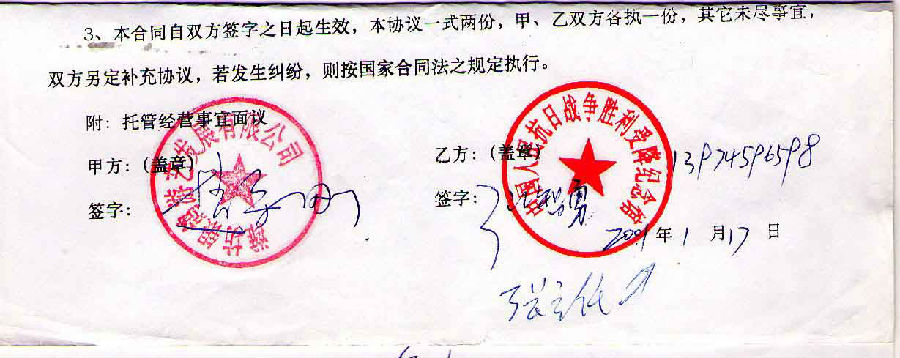 3、本合同自双方签字之日起生效，本协议一式两份，甲、乙双方各执一份，其它未尽事宜，
双方另定补充协议，若发生纠纷，则按国家合同法之规定执行。
附：托管经营事宜面议
甲方：（盖章）
发展有限公司
签字：
乙方：（盖章）
中国人民抗日战争胜利受降纪念馆
签字：
年1月17日